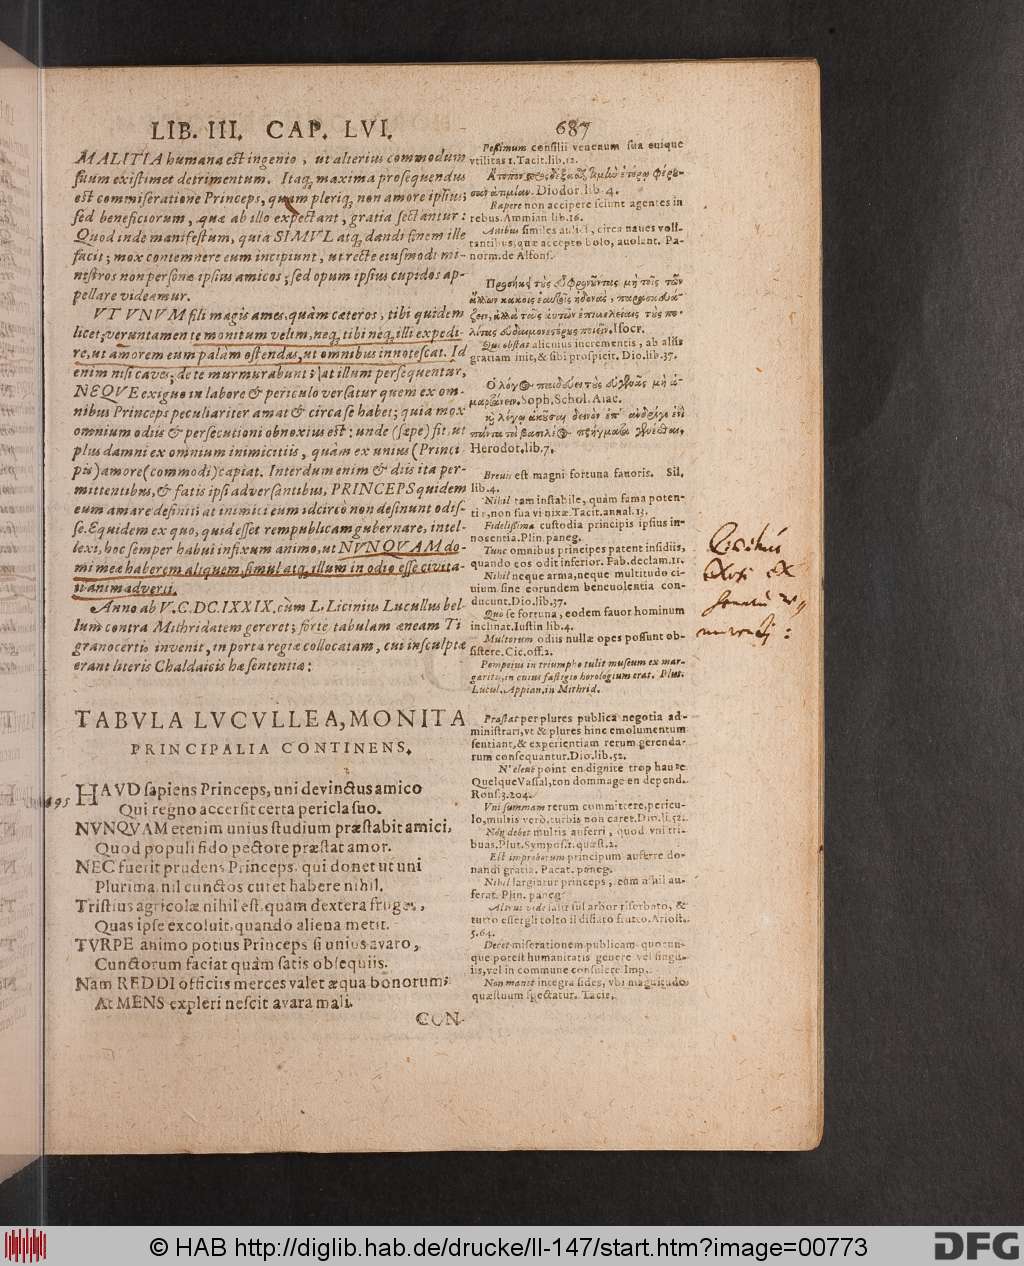 LIB. III. CAP. LVI. 687
MALITIA humana est ingenio, ut alterius commodum
suum existimet detrimentum. Itaq; maxima prosequendus
est commiseratione Princeps, quam pleriq; non amore ipsius;
sed beneficiorum, quæ ab illo expectant, gratia sectantur:
Quod inde manifestum, quia SIMUL atq; dandi finem ille
facit; mox contemnere eum incipiunt, ut recte eiusmodi mi-
nistros non personæ ipsius amicos; sed opum ipsius cupidos ap-
pellare videamur.
UT UNUM fili magis ames, quàm cæteros, tibi quidem
licet; veruntamen te monitum velim, neq; tibi neq; illi expedi-
re, ut amorem eum palam ostendas, ut omnibus innotescat. Id
enim nisi caves; de te murmurabunt; at illum persequentur,
NEQUE exiguo in labore & periculo versatur quem ex om-
nibus Princeps peculiariter amat & circa se habet; quia mox
omnium odiis & persecutioni obnoxius est: unde (sæpe) fit, ut
plus damni ex omnium inimicitiis, quàm ex unius (Princi-
pis) amore (commodi) capiat. Interdum enim & diis ita per-
mittentibus, & fatis ipsi adversantibus, PRINCEPS quidem
eum amare definit; at inimici eum idcircò non desinunt odis-
se. Equidem ex quo, quid esset rempublicam gubernare, intel-
lexi, hoc semper habui infixum animo, ut NUNQUAM do-
mi meæ haberem aliquem, simul atq; illum in odio esse civita-
ti animadverti.
Anno ab V. C. DCIXXIX. cùm L. Licinius Lucullus bel-
lum contra Mithridatem gereret; forte tabulam æneam Ti
granocertis invenit, in porta regiæ collocatam, cui insculptæ
erant literis Chaldaicis hæ sententiæ:
TABVLA LVCVLLEA, MONITA
PRINCIPALIA CONTINENS.
HAVD sapiens Princeps, uni devinctus amico
Qui regno accersit certa pericla suo.
NVNQVAM etenim unius studium præstabit amici,
Quod populi fido pectore præstat amor.
NEC fuerit prudens Princeps, qui donet ut uni
Plurima, nil cunctos curet habere nihil.
Tristius agricolæ nihil est, quam dextera fruges,
Quas ipse excoluit, quando aliena metit.
TVRPE animo potius Princeps si unius avaro,
Cunctorum faciat quàm satis obsequiis.
Nam REDDI officiis merces valet æqua bonorum;
At MENS expleri nescit avara mali.
CON-
Pessimum consilii venenum sua cuique
vtilitas 1. Tacit. lib. 12.
Diodor. lib. 4.
Rapere non accipere sciunt agentes in
rebus. Ammian lib. 16.
Avibus similes aulici, circa naues voli-
tantibus, quæ accepto bolo, auolant. Pa-
norm. de Alfons.
Isocr.
Qui obstas alicuius incrementis, ab aliis
gratiam init, & sibi prospicit. Dio. lib. 37.
Soph. Schol. Aiac.
Herodot. lib. 7.
Breuis est magni fortuna fauoris. Sil.
lib. 4.
Nihil tam instabile, quàm fama poten-
tiæ, non sua vi nixæ. Tacit. annal. 13.
Fidelissima custodia principis ipsius in-
nosentia. Plin. paneg.
Tunc omnibus principes patent insidiis,
quando eos odit inferior. Fab. declam. 11.
Nihil neque arma, neque multitudo ci-
uium sine eorundem beneuolentia con-
ducunt. Dio. lib. 37.
Quo se fortuna, eodem fauor hominum
inclinat. Iustin lib. 4.
Multorum odiis nullæ opes possunt ob-
sistere. Cic. off. 2.
Pompeius in triumpho tulit museum ex mar-
garitis, in cuius fastigio horologium erat. Plut.
Lucul. Appian. in Mithrid.
Præstat per plures publica negotia ad-
ministrari, vt & plures hinc emolumentum
sentiant, & experientiam rerum gerenda-
rum consequantur. Dio. lib. 52.
N'eleue point en dignite trop hauze
Quelque Vassal, ton dommage en depend.
Rons. 3. 204.
Vni summam rerum committere, pericu-
lo, multis verò, turbis non caret. Dio. li. 52.
Nõn debet multis auferri, quod vni tri-
buas. Plut. Sympos. 1. quæst. 2.
Est improborum principum auferre do-
nandi gratia. Pacat. paneg.
Nihil largiatur princeps, cum nihil au-
ferat. Plin. paneg.
5. 64.
Decet miserationem publicam quocun-
que potest humanitatis genere vel singu-
lis, vel in commune consulere Imp.
Non manet integra fides, vbi magnitudo
quæstuum spectatur. Tacit.
© HAB http://diglib.hab.de/drucke/li-147/start.htm?image=00773
DFG